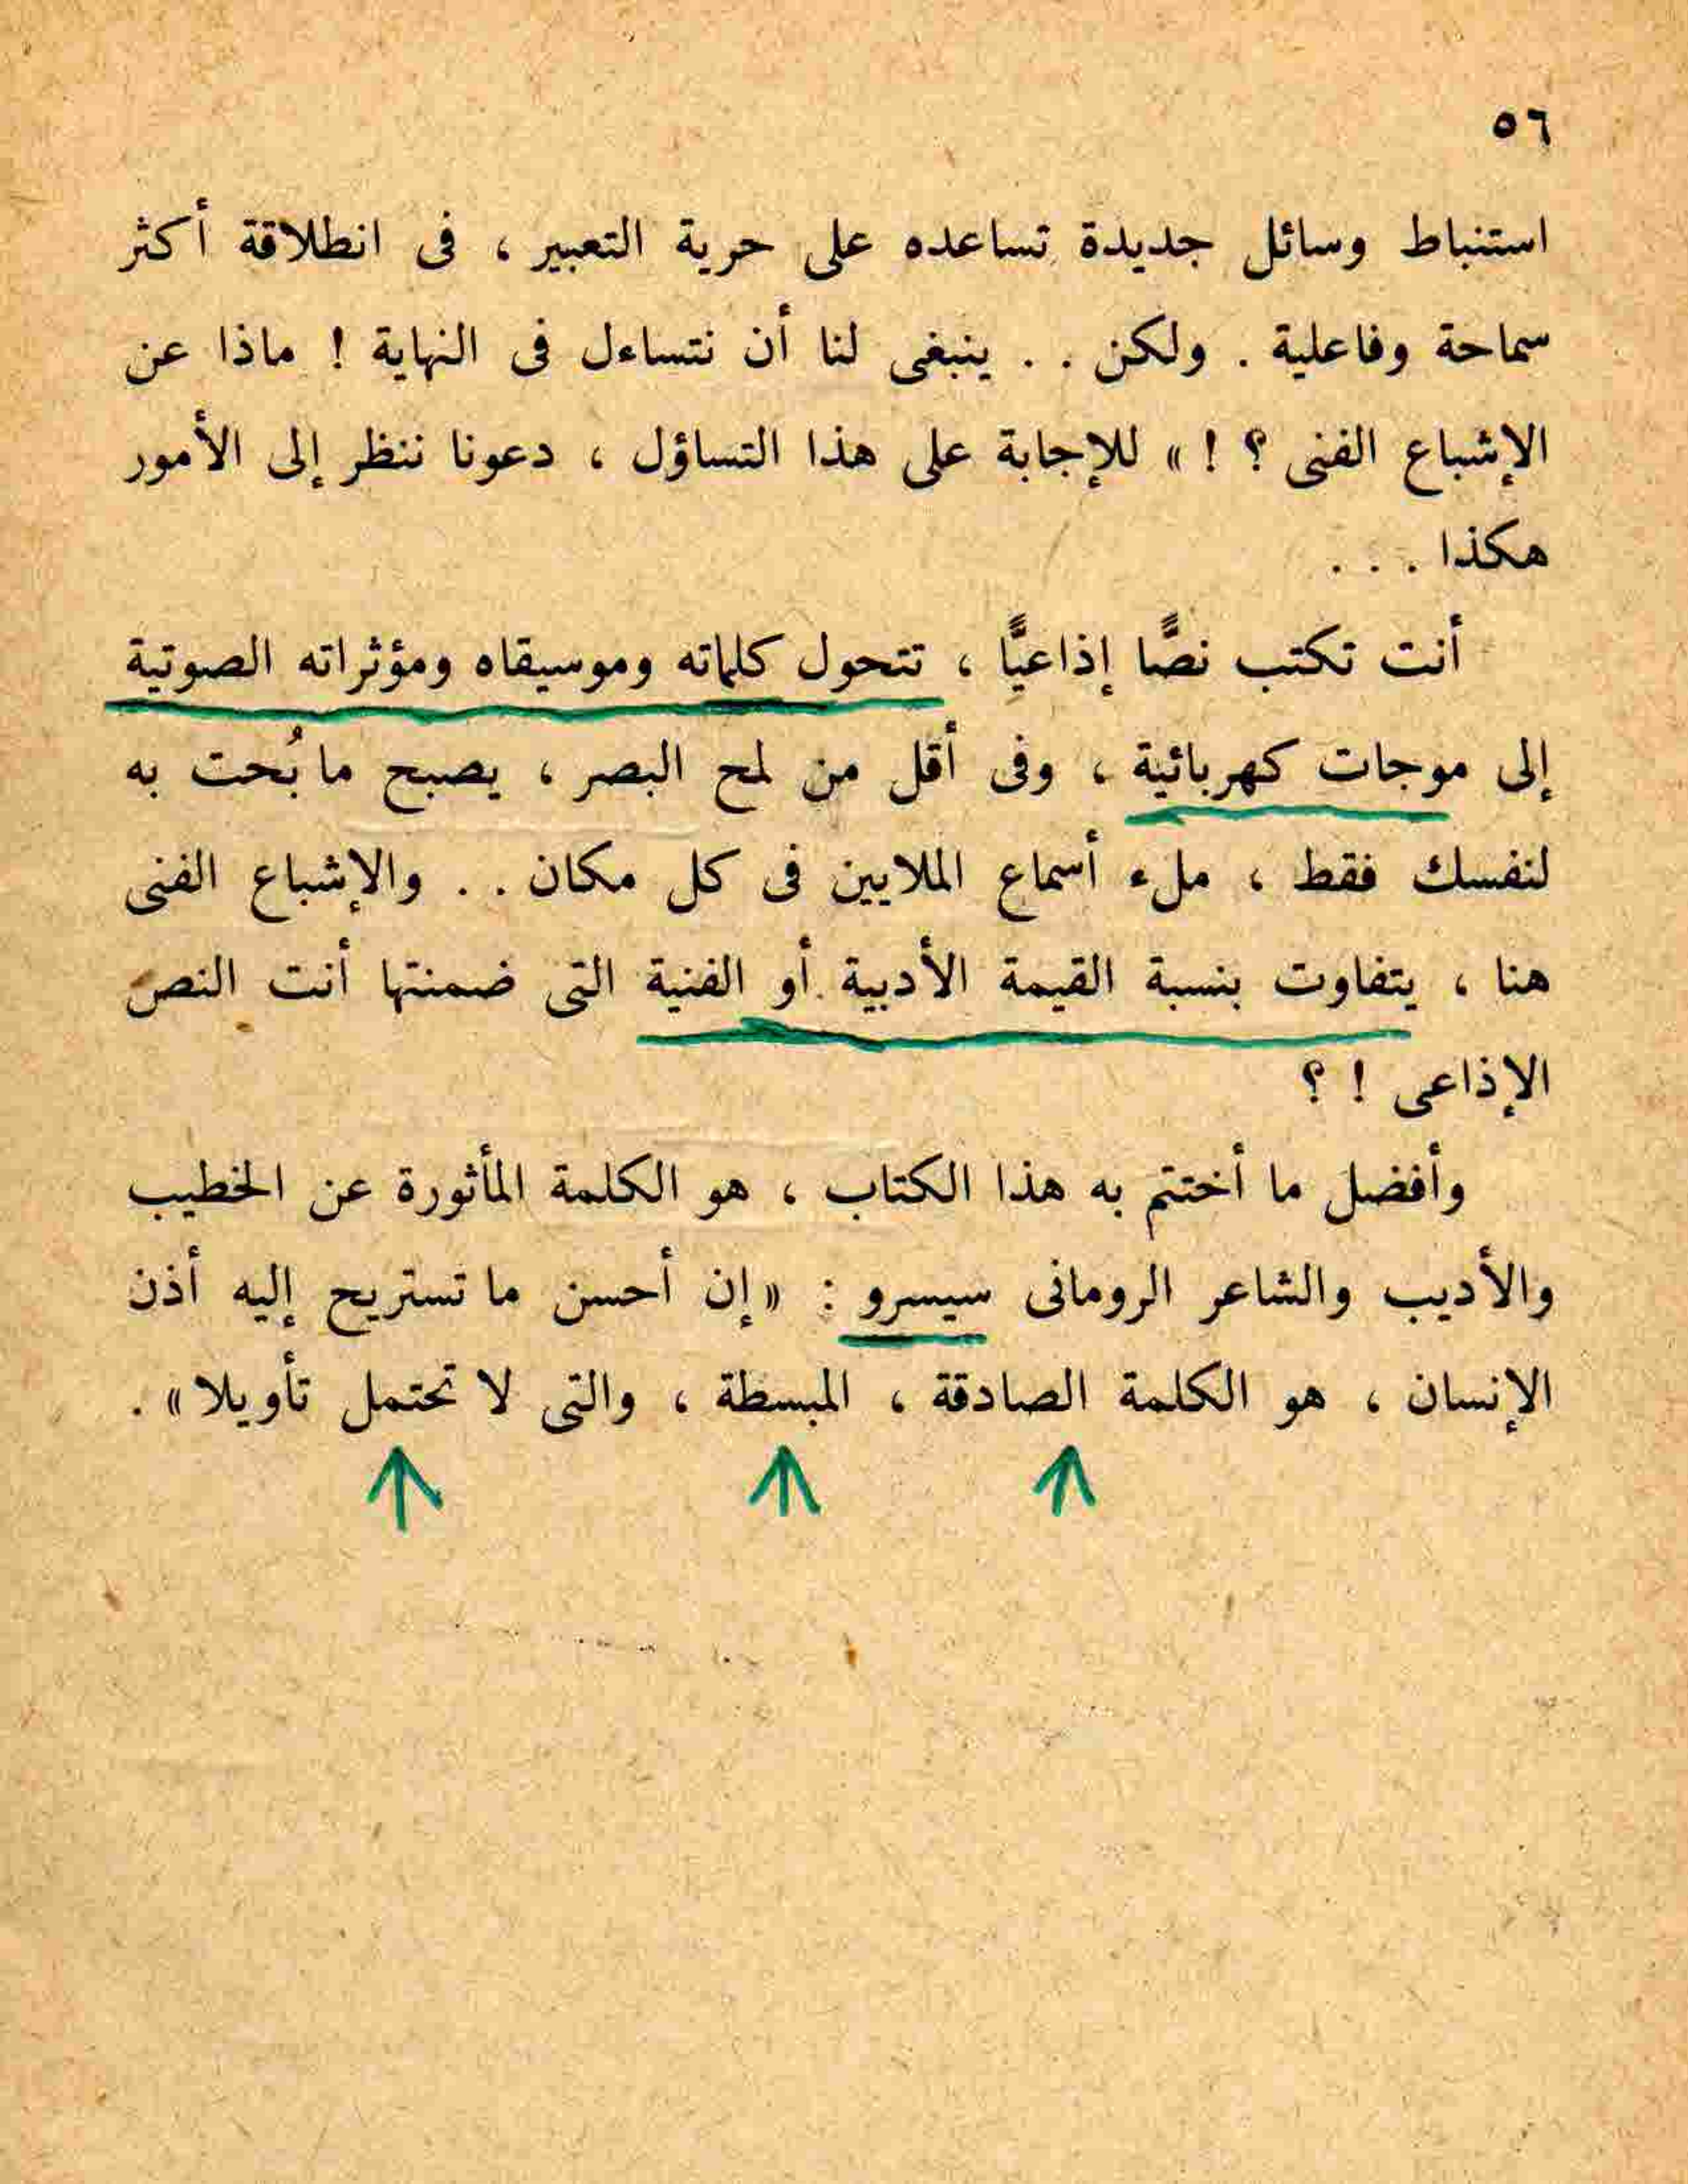 ٥٦
استنباط وسائل جديدة تساعده على حرية التعبير ، فى انطلاقة أكثر
سماحة وفاعلية . ولكن . . ينبغى لنا أن نتساءل فى النهاية ! ماذا عن
الإشباع الفنى ؟ ! » للإجابة على هذا التساؤل ، دعونا ننظر إلى الأمور
هكذا . . .
أنت تكتب نصًّا إذاعيًّا ، تتحول كلماته وموسيقاه ومؤثراته الصوتية
إلى موجات كهربائية ، وفى أقل من لمح البصر ، يصبح ما بُحت به
لنفسك فقط ، ملء أسماع الملايين فى كل مكان . . والإشباع الفنى
هنا ، يتفاوت بنسبة القيمة الأدبية أو الفنية التى ضمنتها أنت النص
الإذاعى ! ؟
وأفضل ما أختتم به هذا الكتاب ، هو الكلمة المأثورة عن الخطيب
والأديب والشاعر الرومانى سيسرو : « إن أحسن ما تستريح إليه أذن
الإنسان ، هو الكلمة الصادقة ، المبسطة ، والتى لا تحتمل تأويلا » .